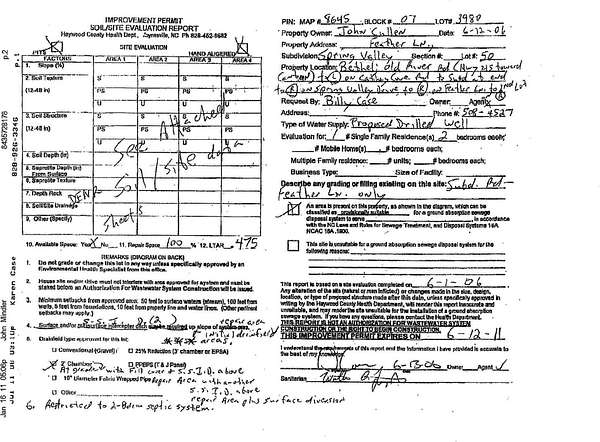 IMPROVEMENT PERMIT
SOIL/SITE EVALUATION REPORT
Haywood County Health Dept., Zynsville, NC Ph 828-452-6682
SITE EVALUATION
PITS ☒ HAND AUGERED ☒
FACTORS AREA 1 AREA 2 AREA 3 AREA 4
1. Slope (%)
2. Soil Texture S S S S
(12-48 in) PS PS PS PS
U U U U
3. Soil Structure S S S S
(12-48 in) PS PS PS PS
U U U U
4. Soil Depth (in)
5. Saprolite Depth (in)
From Surface
6. Saprolite Texture
7. Depth Rock
8. Soil/Site Drainage
9. Other (Specify)
See Attached
DENR Soil/site data
Sheets
10. Available Space: Yes X No 11. Repair Space 100 % 12. LTAR .475
REMARKS (DIAGRAM ON BACK)
1. Do not grade or change this lot in any way unless specifically approved by an
Environmental Health Specialist from this office.
2. House site and/or drive must not interfere with area approved for system and must be
stated before an Authorization For Wastewater System Construction will be issued.
3. Minimum setbacks from approved area: 50 feet to surface waters (stream), 100 feet from
wells, 5 feet from foundations, 10 feet from property line and water lines. (Other pertinent
setbacks may apply.)
4. Surface and/or subsurface interceptor ditch required up slope of system area.
repair area
& initial drainfield
areas.
5. Drainfield type approved for this lot:
☐ Conventional (Gravel) ☐ 25% Reduction (3' chamber or EPSA)
☒ Chamber ☐ PPBPS (T & J Panel)
At graded with Fill cover & S.S.I.D. above
☐ 10" Diameter Fabric Wrapped Pipe Repair Area with another
☐ Other S.S.I.D. above
repair Area plus surface diversion
6. Restricted to 2-Bdrm septic system.
PIN: MAP # 8645 BLOCK # 07 LOT # 3980
Property Owner: John Cullen Date: 6-12-06
Property Address: Feather Ln.,
Subdivision: Spring Valley Section #: Lot #: 50
Property Location: Bethel: Old River Rd (Hwy 215 toward
Canton) to (L) on Cathey Cove Rd to Subd at end
to (R) on Spring Valley Drive to (R) on Feather Ln to (R) Lot
Request By: Billy Case Owner: Agent:
Address: Phone #: 508-4527
Type of Water Supply: Proposed Drilled Well
Evaluation for: 1 # Single Family Residence(s), 2 bedrooms each;
# Mobile Home(s) # bedrooms each;
Multiple Family residence: # units; # bedrooms each;
Business Type: Size of Facility:
Describe any grading or filling existing on this site: Subd. Rd-
Feather Ln. only
☒ An area is present on this property, as shown in the diagram, which can be
classified as provisionally suitable for a ground absorption sewage
disposal system to serve , in accordance
with the NC Laws and Rules for Sewage Treatment, and Disposal Systems 15A
NCAC 18A .1900.
☐ This site is unsuitable for a ground absorption sewage disposal system for the
following reason(s):
This report is based on a site evaluation completed on 6-1-06
Any alteration of the site (natural or man inflicted) or changes made in the size, design,
location, or type of proposed structure made after this date, unless specifically approved in
writing by the Haywood County Health Department, will render this report inaccurate and
unavailable, and may render the site unsuitable for the installation of a ground absorption
sewage system. If you have any questions, please contact the County Health Department.
THIS REPORT IS NOT AN AUTHORIZATION FOR WASTEWATER SYSTEM
CONSTRUCTION OR THE RIGHT TO BEGIN CONSTRUCTION.
THIS IMPROVEMENT PERMIT EXPIRES ON 6-12-11
I understand the contents of this report and the information I have provided is accurate to
the best of my knowledge.
6-13-06 Owner Agent ✓
Sanitarian
p.2
p.1
8435728176
828-926-3346
Karen Case
John Minder
Jan 16 11 05:
Jul 11 08 03:21p